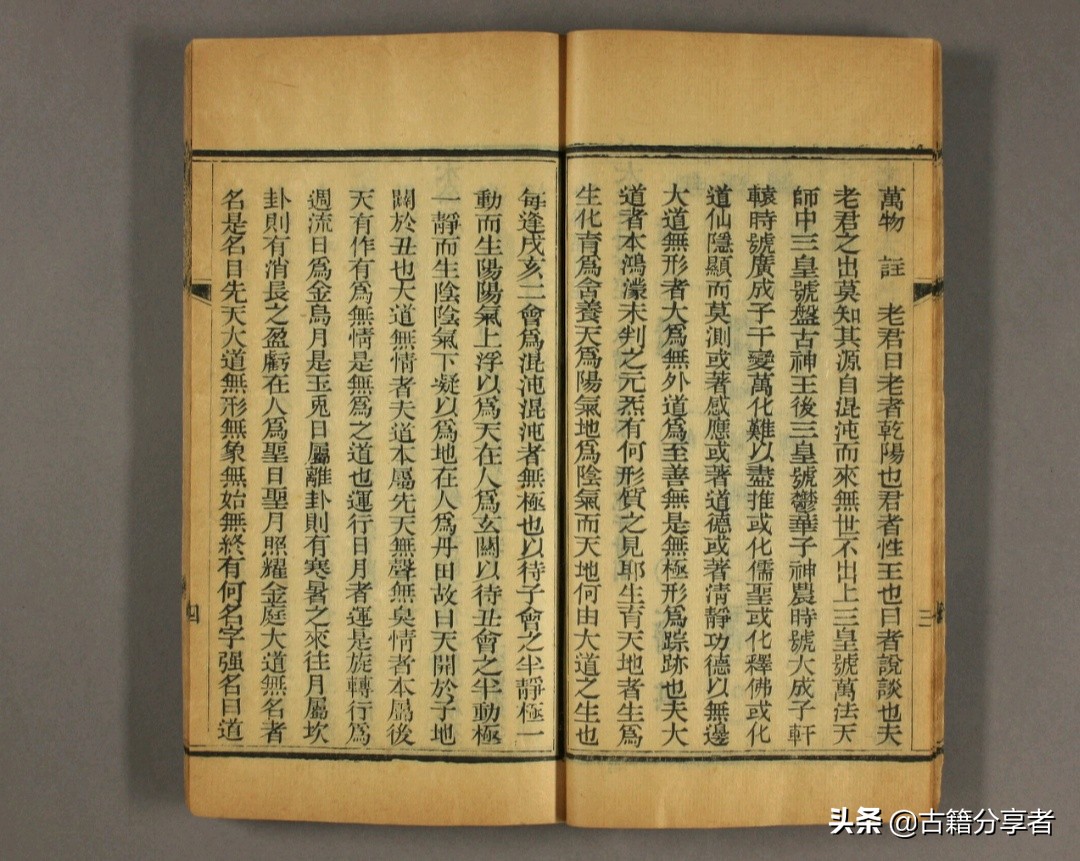 萬物 註 老君曰老者乾陽也君者性王也曰者說談也夫
老君之出莫知其源自混沌而來無世不出上三皇號萬法天
師中三皇號盤古神王後三皇號鬱華子神農時號大成子軒
轅時號廣成子千變萬化難以盡推或化儒聖或化釋佛或化
道仙隱顯而莫測或著感應或著道德或著清靜功德以無邊
大道無形者大爲無外道爲至善無是無極形爲踪跡也夫大
道者本鴻濛未判之元炁有何形質之見耶生育天地者生爲
生化育爲含養天爲陽氣地爲陰氣而天地何由大道之生也
三
每逢戌亥二會爲混沌混沌者無極也以待子會之半靜極一
動而生陽陽氣上浮以爲天在人爲玄關以待丑會之半動極
一靜而生陰陰氣下凝以爲地在人爲丹田故曰天開於子地
闢於丑也大道無情者夫道本屬先天無聲無臭情者本屬後
天有作有爲無情是無爲之道也運行日月者運是旋轉行爲
週流日爲金烏月是玉兎日屬離卦則有寒暑之來往月屬坎
卦則有消長之盈虧在人爲聖日聖月照耀金庭大道無名者
名是名目先天大道無形無象無始無終有何名字强名曰道
四
头条 @古籍分享者